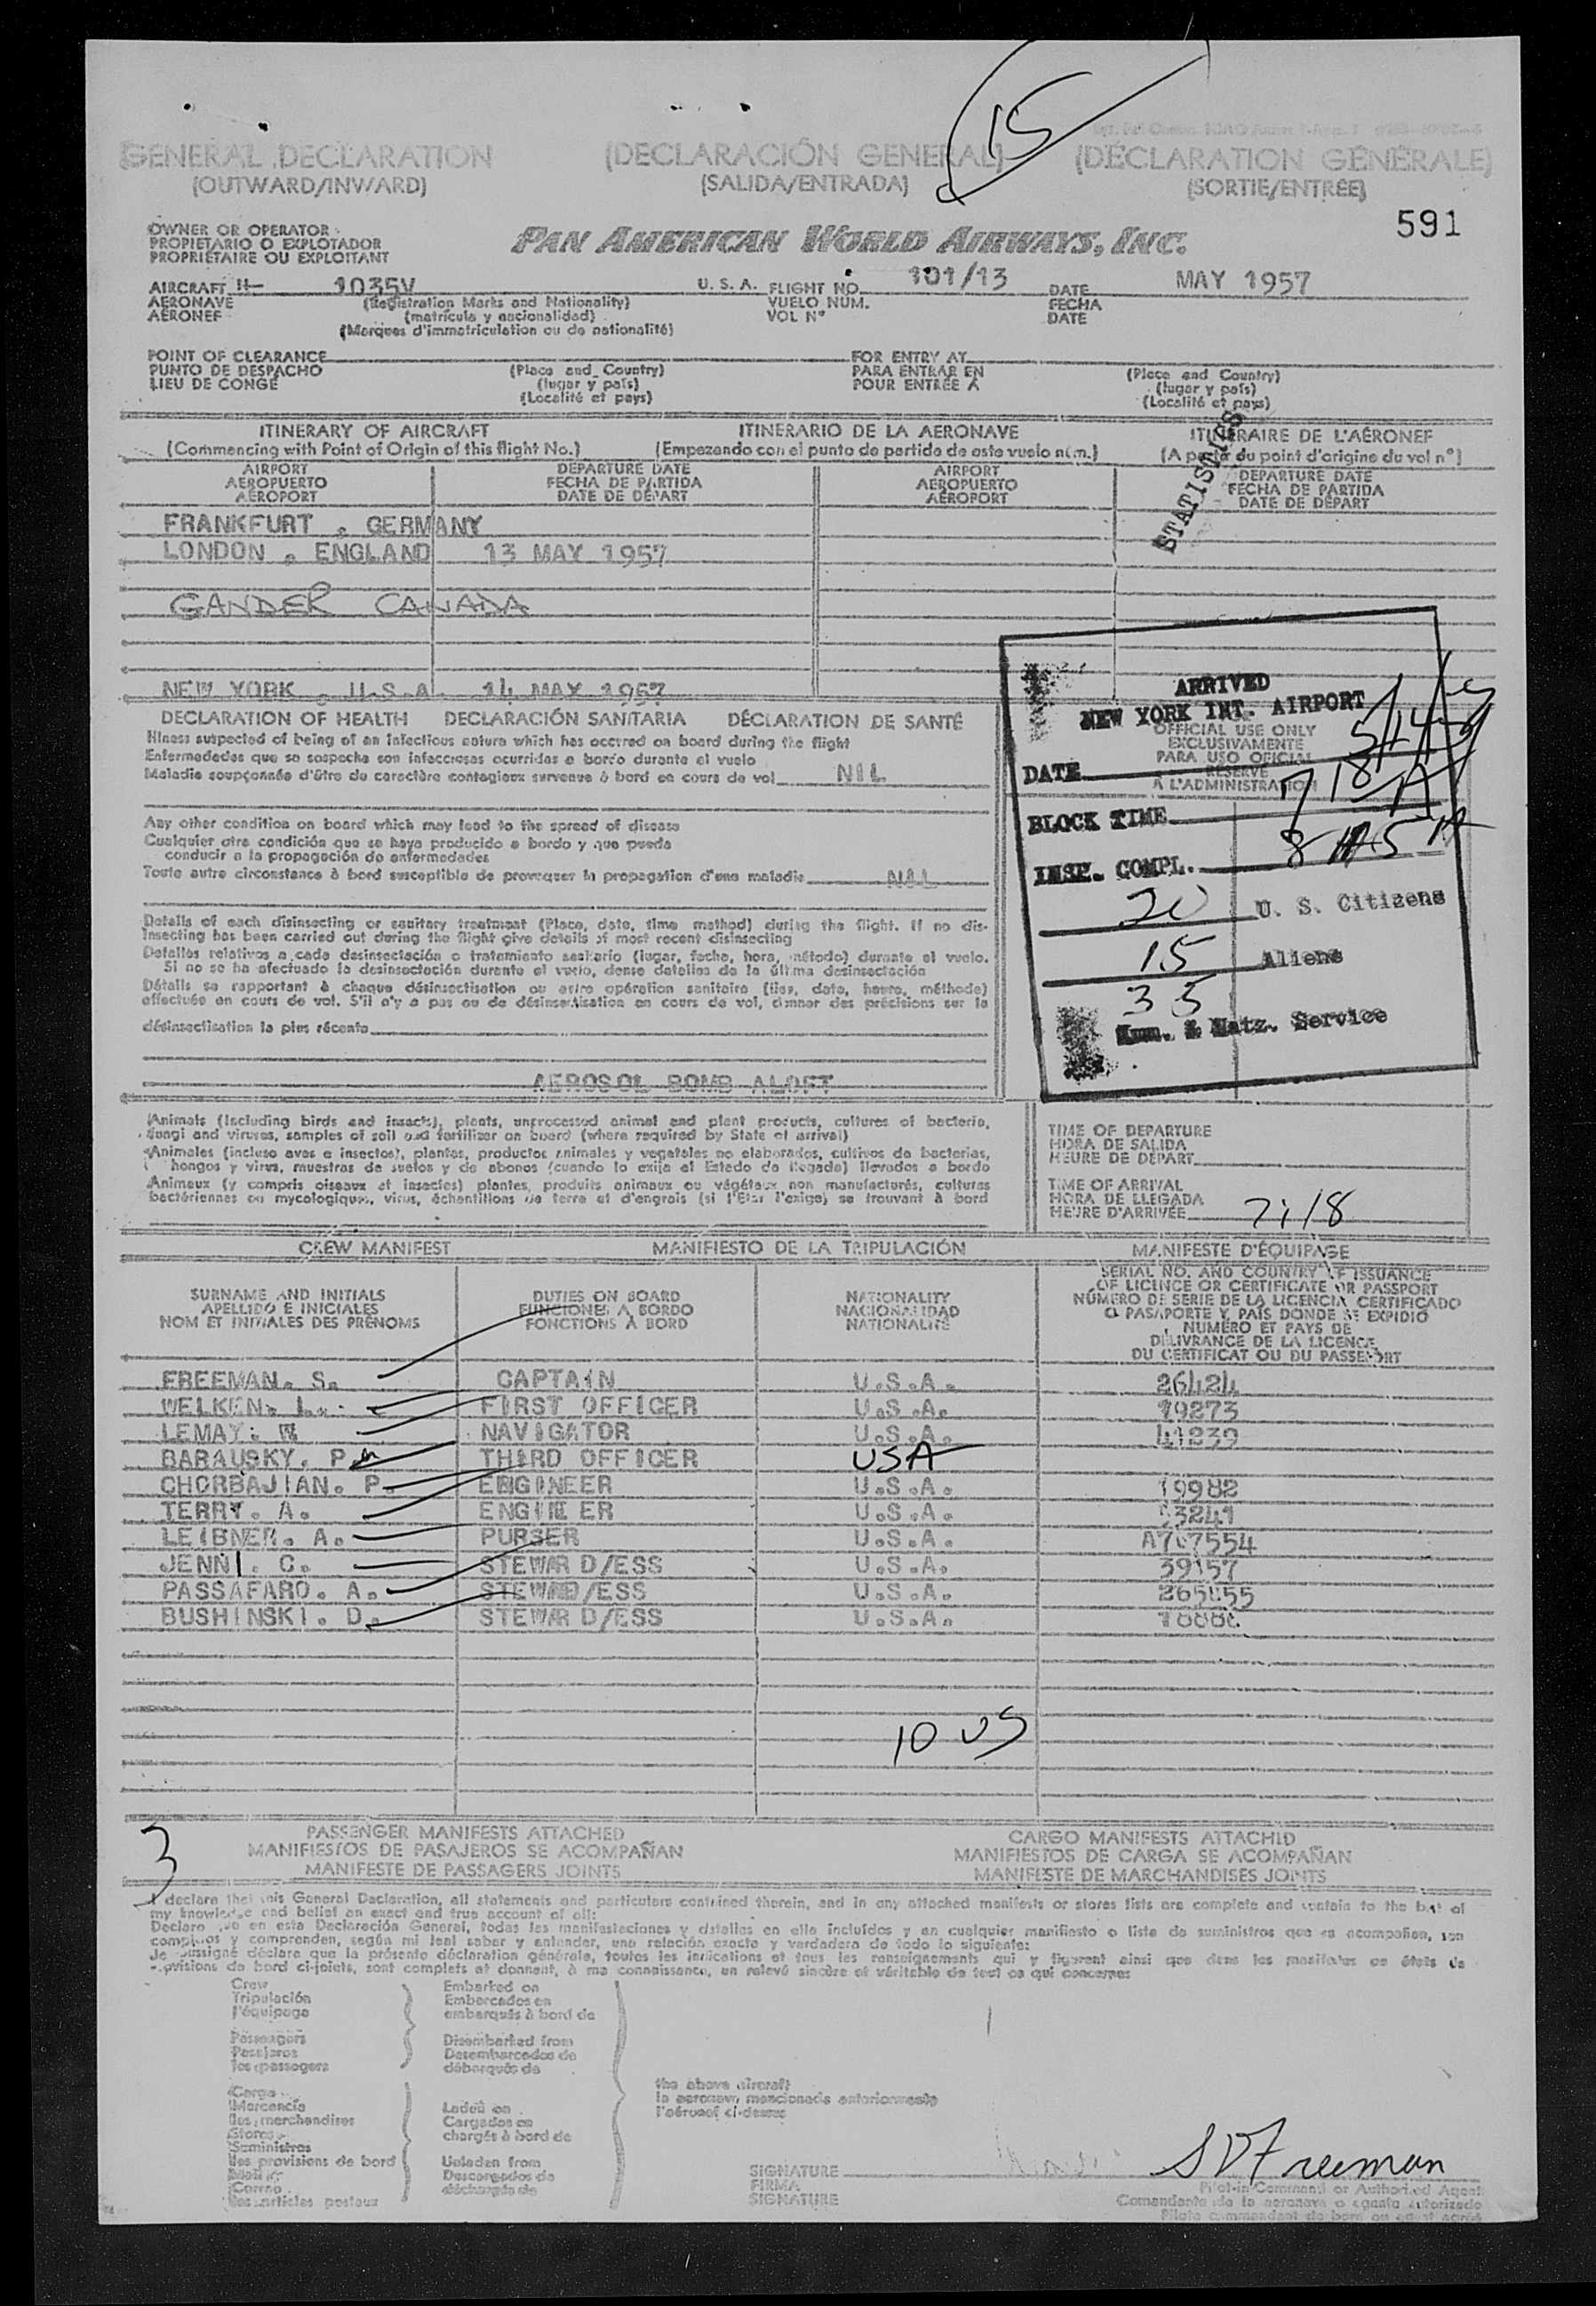 15
GENERAL DECLARATION (DECLARACIÓN GENERAL) (DÉCLARATION GÉNÉRALE)
(OUTWARD/INWARD) (SALIDA/ENTRADA) (SORTIE/ENTRÉE)
591
OWNER OR OPERATOR
PROPIETARIO O EXPLOTADOR
PROPRIÉTAIRE OU EXPLOITANT
PAN AMERICAN WORLD AIRWAYS, INC.
AIRCRAFT N 1035V U. S. A. FLIGHT NO. 101/13 DATE MAY 1957
AERONAVE (Registration Marks and Nationality) VUELO NÚM. FECHA
AÉRONEF (matrícula y nacionalidad) VOL Nº DATE
(Marques d'immatriculation ou de nationalité)
POINT OF CLEARANCE FOR ENTRY AT
PUNTO DE DESPACHO (Place and Country) PARA ENTRAR EN (Place and Country)
LIEU DE CONGÉ (lugar y país) POUR ENTRÉE A (lugar y país)
(Localité et pays) (Localité et pays)
STATISTICS
ITINERARY OF AIRCRAFT ITINERARIO DE LA AERONAVE ITINÉRAIRE DE L'AÉRONEF
(Commencing with Point of Origin of this flight No.) (Empezando con el punto de partida de este vuelo núm.) (A partir du point d'origine du vol nº)
AIRPORT DEPARTURE DATE AIRPORT DEPARTURE DATE
AEROPUERTO FECHA DE PARTIDA AEROPUERTO FECHA DE PARTIDA
AÉROPORT DATE DE DÉPART AÉROPORT DATE DE DÉPART
FRANKFURT , GERMANY
LONDON , ENGLAND 13 MAY 1957
GANDER CANADA
NEW YORK , U.S.A. 14 MAY 1957
DECLARATION OF HEALTH DECLARACIÓN SANITARIA DÉCLARATION DE SANTÉ
Illness suspected of being of an infectious nature which has occurred on board during the flight
Enfermedades que se sospecha son infecciosas ocurridas a bordo durante el vuelo
Maladie soupçonnée d'être de caractère contagieux survenue à bord en cours de vol NIL
Any other condition on board which may lead to the spread of disease
Cualquier otra condición que se haya producido a bordo y que pueda
conducir a la propagación de enfermedades
Toute autre circonstance à bord susceptible de provoquer la propagation d'une maladie NIL
Details of each disinsecting or sanitary treatment (Place, date, time method) during the flight. If no dis-
insecting has been carried out during the flight give details of most recent disinsecting
Detalles relativos a cada desinsectación o tratamiento sanitario (lugar, fecha, hora, método) durante el vuelo.
Si no se ha efectuado la desinsectación durante el vuelo, dense detalles de la última desinsectación
Détails se rapportant à chaque désinsectisation ou autre opération sanitaire (lieu, date, heure, méthode)
effectuée en cours de vol. S'il n'y a pas eu de désinsectisation en cours de vol, donner des précisions sur la
désinsectisation la plus récente
AEROSOL BOMB ALOFT
ARRIVED
NEW YORK INT. AIRPORT
OFFICIAL USE ONLY
EXCLUSIVAMENTE
PARA USO OFICIAL
RÉSERVÉ
A L'ADMINISTRATION
DATE 5/14/57
BLOCK TIME 718 A
INSP. COMPL. 8 45 A
20 U. S. Citizens
15 Aliens
35
Imm. & Natz. Service
Animals (including birds and insects), plants, unprocessed animal and plant products, cultures of bacteria,
fungi and viruses, samples of soil and fertilizer on board (where required by State of arrival)
Animales (incluso aves e insectos), plantas, productos animales y vegetales no elaborados, cultivos de bacterias,
hongos y virus, muestras de suelos y de abonos (cuando lo exija el Estado de llegada) llevados a bordo
Animaux (y compris oiseaux et insectes) plantes, produits animaux ou végétaux non manufacturés, cultures
bactériennes ou mycologiques, virus, échantillons de terre et d'engrais (si l'Etat l'exige) se trouvant à bord
TIME OF DEPARTURE
HORA DE SALIDA
HEURE DE DÉPART
TIME OF ARRIVAL
HORA DE LLEGADA
HEURE D'ARRIVÉE 7:18
CREW MANIFEST MANIFIESTO DE LA TRIPULACIÓN MANIFESTE D'ÉQUIPAGE
SURNAME AND INITIALS DUTIES ON BOARD NATIONALITY SERIAL NO. AND COUNTRY OF ISSUANCE
APELLIDO E INICIALES FUNCIONES A BORDO NACIONALIDAD OF LICENCE OR CERTIFICATE OR PASSPORT
NOM ET INITIALES DES PRÉNOMS FONCTIONS À BORD NATIONALITÉ NÚMERO DE SERIE DE LA LICENCIA CERTIFICADO
O PASAPORTE Y PAÍS DONDE SE EXPIDIÓ
NUMÉRO ET PAYS DE
DÉLIVRANCE DE LA LICENCE
DU CERTIFICAT OU DU PASSEPORT
FREEMAN. S. CAPTAIN U.S.A. 26424
WELKEN. L. FIRST OFFICER U.S.A. 19273
LEMAY. W NAVIGATOR U.S.A. 41239
BARAUSKY. P. THIRD OFFICER USA
CHORBAJIAN. P. ENGINEER U.S.A. 19982
TERRY. A. ENGINEER U.S.A. 93241
LEIBNER. A. PURSER U.S.A. A707554
JENNI. C. STEWARD/ESS U.S.A. 39157
PASSAFARO. A. STEWARD/ESS U.S.A. 265855
BUSHINSKI. D. STEWARD/ESS U.S.A.
10 US
3
PASSENGER MANIFESTS ATTACHED CARGO MANIFESTS ATTACHED
MANIFIESTOS DE PASAJEROS SE ACOMPAÑAN MANIFIESTOS DE CARGA SE ACOMPAÑAN
MANIFESTE DE PASSAGERS JOINTS MANIFESTE DE MARCHANDISES JOINTS
I declare that this General Declaration, all statements and particulars contained therein, and in any attached manifests or stores lists are complete and contain to the best of
my knowledge and belief an exact and true account of all:
Declaro que en esta Declaración General, todas las manifestaciones y detalles en ella incluídos y en cualquier manifiesto o lista de suministros que se acompañen, son
completos y comprenden, según mi leal saber y entender, una relación exacta y verdadera de todo lo siguiente:
Je soussigné déclare que la présente déclaration générale, toutes les indications et tous les renseignements qui y figurent ainsi que dans les manifestes ou états de
provisions de bord ci-joints, sont complets et donnent, à ma connaissance, un relevé sincère et véritable de tout ce qui concerne:
Crew Embarked on
Tripulación Embarcados en
l'équipage embarqués à bord de
Passengers Disembarked from
Pasajeros Desembarcados de
les passagers débarqués de
the above aircraft
la aeronave mencionada anteriormente
l'aéronef ci-dessus
Cargo
Mercancía Laden on
les merchandises Cargados en
Stores chargés à bord de
Suministros
les provisions de bord Unladen from
Mail Descargados de
Correo déchargés de
les articles postaux
SIGNATURE SVFreeman
FIRMA Pilot-in-Command or Authorized Agent
SIGNATURE Comandante de la aeronave o agente autorizado
Pilote commandant de bord ou agent agréé